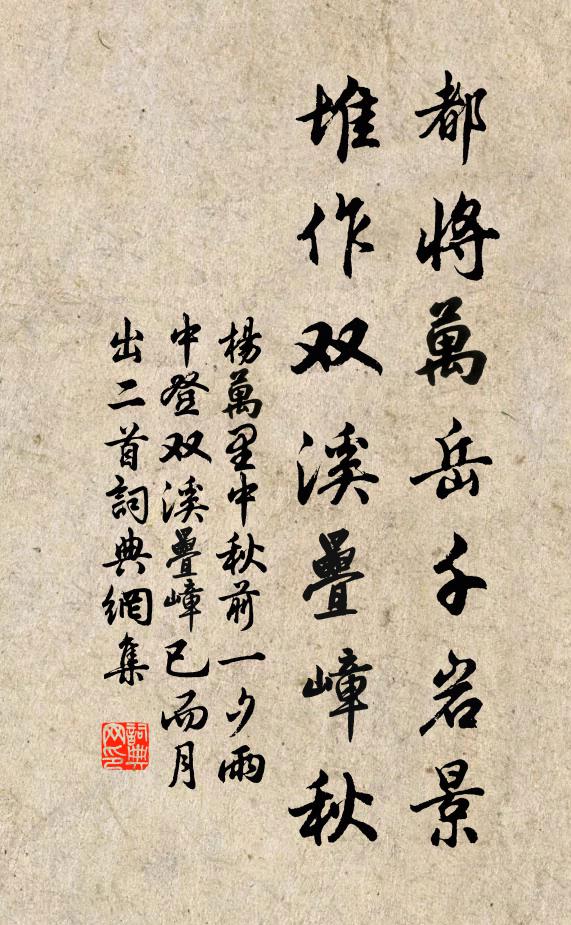 都將萬岳千岩景
堆作双溪疊嶂秋
楊萬里中秋前一夕雨
中登双溪疊嶂已而月
出二首詞典網集
詞典
网印